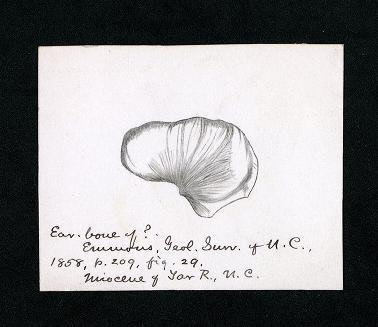 Ear-bone of ?.
Emmons, Geol. Surv. of N.C.,
1858, p. 209, fig. 29.
Miocene of Tar R., N.C.